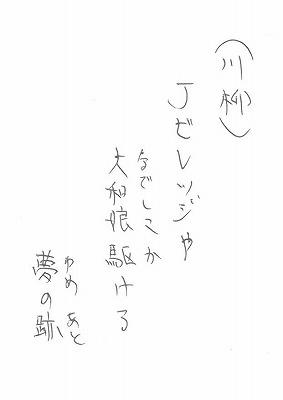 （川柳）
Jビレッジや
なでしこか
大和娘駆ける
ゆめ あと
夢の跡